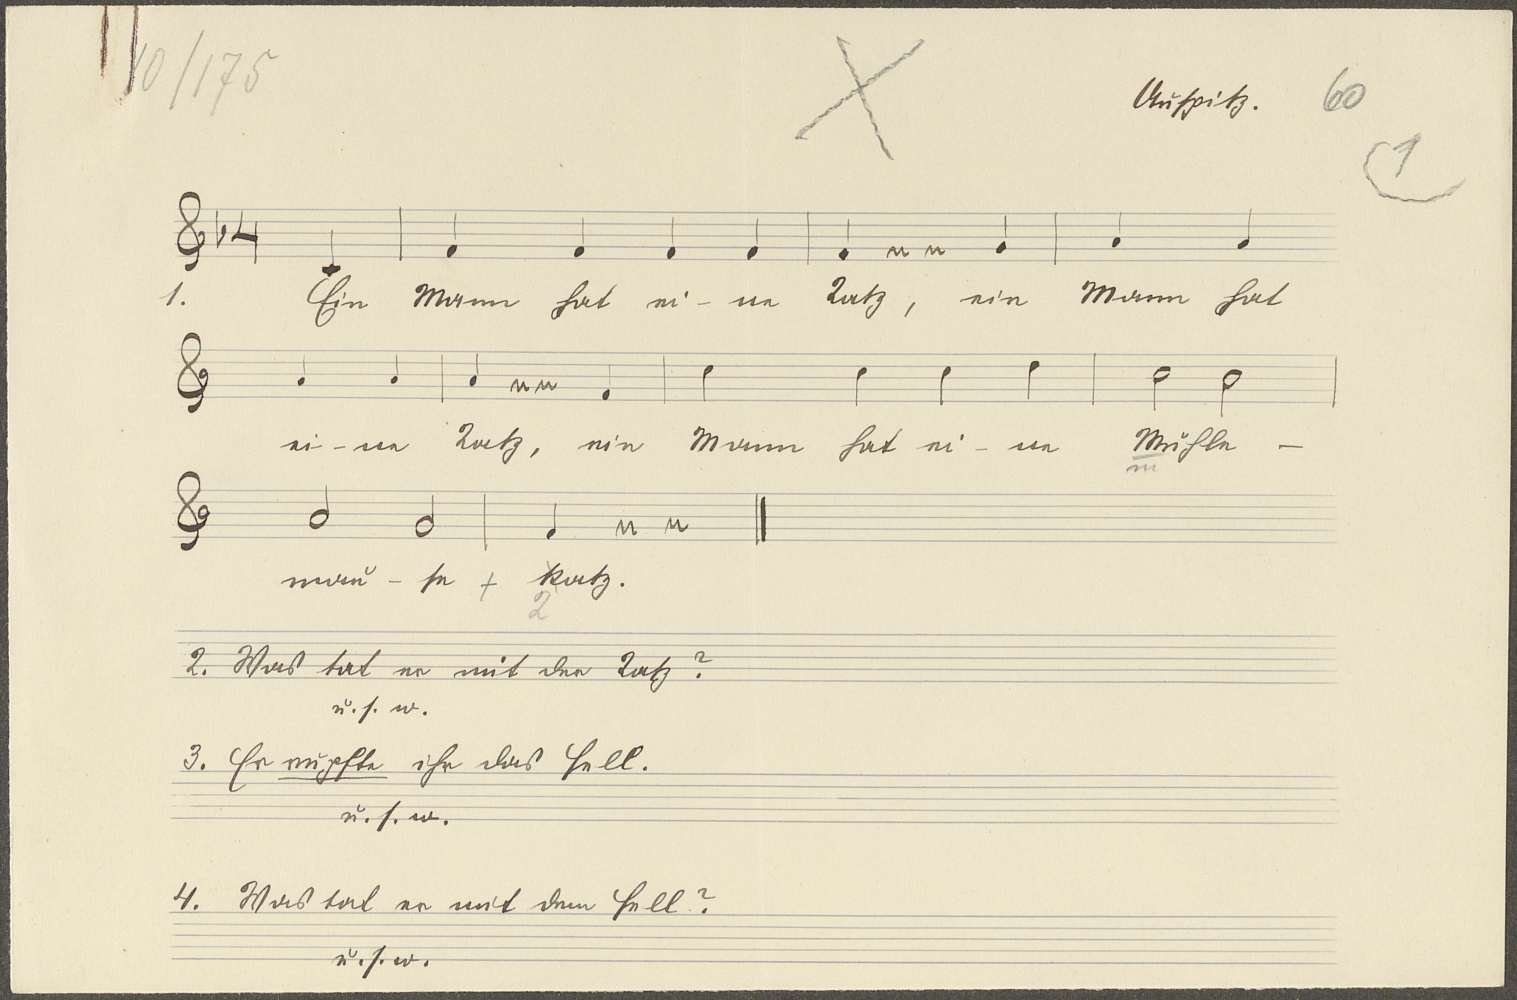 10/175
Auspitz. 60
1
1. Ein Mann hat ei - ne Katz, ein Mann hat
ei - ne Katz, ein Mann hat ei - ne Mühle -
m
mau - se + Katz.
2. Was tat er mit der Katz?
u. s. w.
3. Er rupfte ihr das Fell.
u. s. w.
4. Was tat er mit dem Fell?
u. s. w.